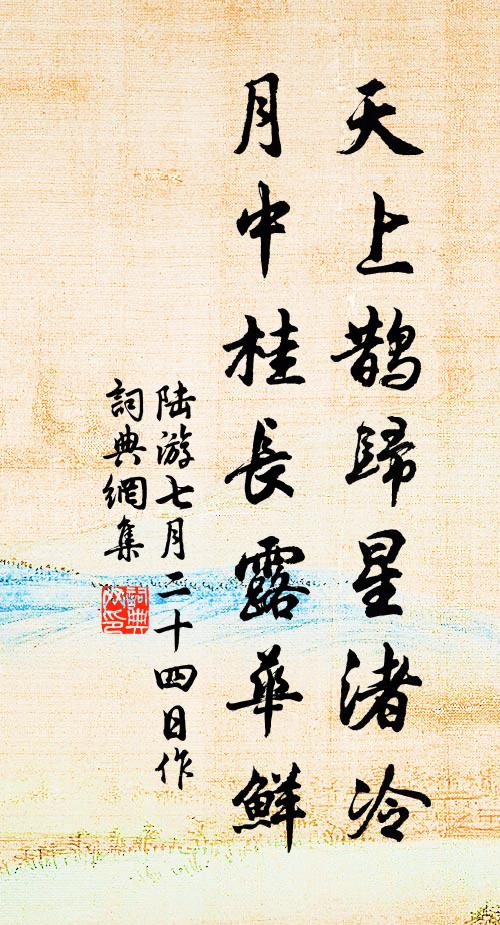 天上鵲歸星渚冷
月中桂長露華鮮
陆游七月二十四日作
詞典網集